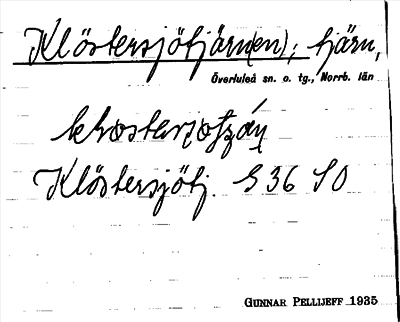 Klöstersjötjärn(en), tjärn,
Överluleå sn. o. tg., Norrb. län
Klöstersjötj. S 36 SO
GUNNAR PELLIJEFF 1935